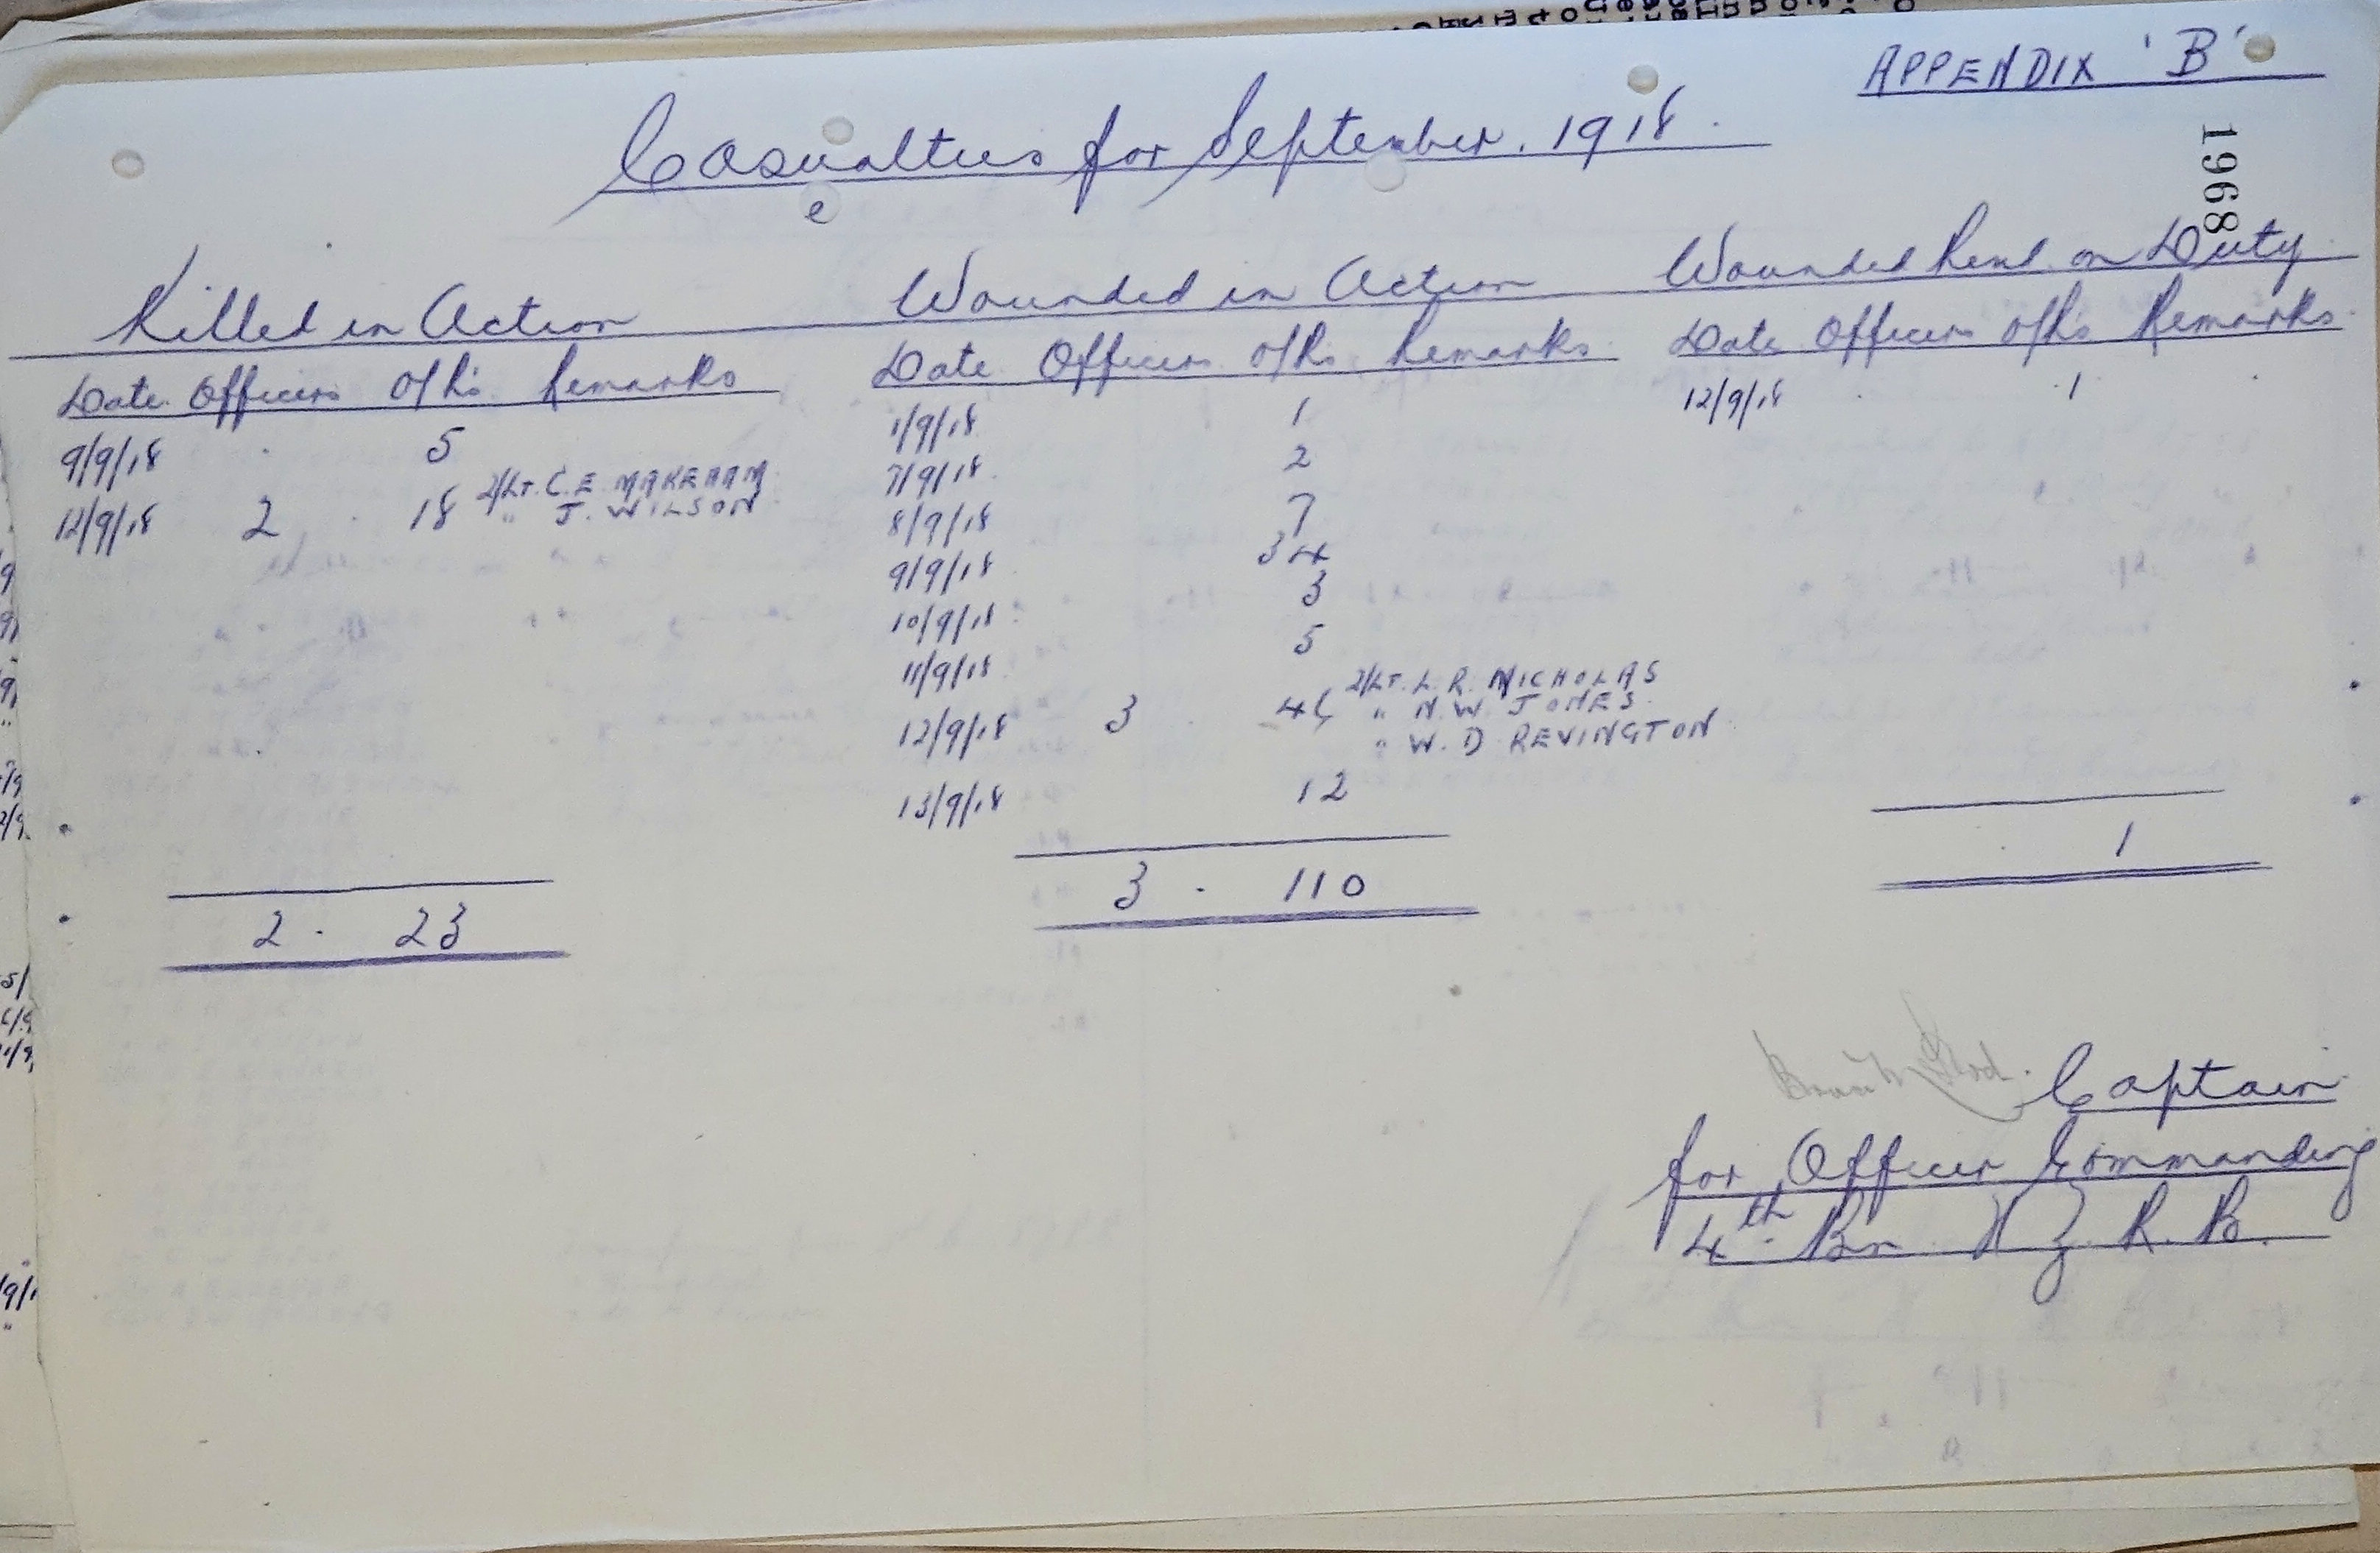 APPENDIX 'B'
Casualties for September. 1918.
e
1968
Killed in Action Wounded in Action Wounded Rem'd on Duty
Date Officers O/Rs Remarks Date Officers O/Rs Remarks Date Officers O/Rs Remarks
9/9/18 5 1/9/18 1 12/9/18 1
12/9/18 2 18 2/LT. C.E. MAKEHAM 7/9/18 2
" J. WILSON 8/9/18 7
9/9/18 34
10/9/18 3
11/9/18 5
12/9/18 3 46 2/LT. L. R. NICHOLAS
" N.W. JONES
" W. D REVINGTON
13/9/18 12
2 . 23 3 . 110 1
Captain
for Officer Commanding
4th Bn N Z. R. B.